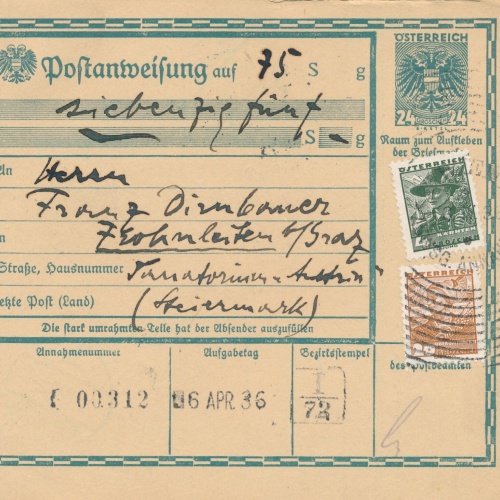 ÖSTERREICH
Postanweisung auf 75 S g
24 24
siebenzigfünf
S g
Raum zum Aufkleben
der Briefmarken
An Herrn
Franz Dirnbamer
Frohnleiten b/Graz
Straße, Hausnummer Sanatorium "Austria"
Letzte Post (Land) (Steiermark)
ÖSTERREICH
KÄRNTEN
ÖSTERREICH
Die stark umrahmten Teile hat der Absender auszufüllen
Annahmenummer Aufgabetag Bezirksstempel
des Postbeamten
00312 6 APR. 36 I
72